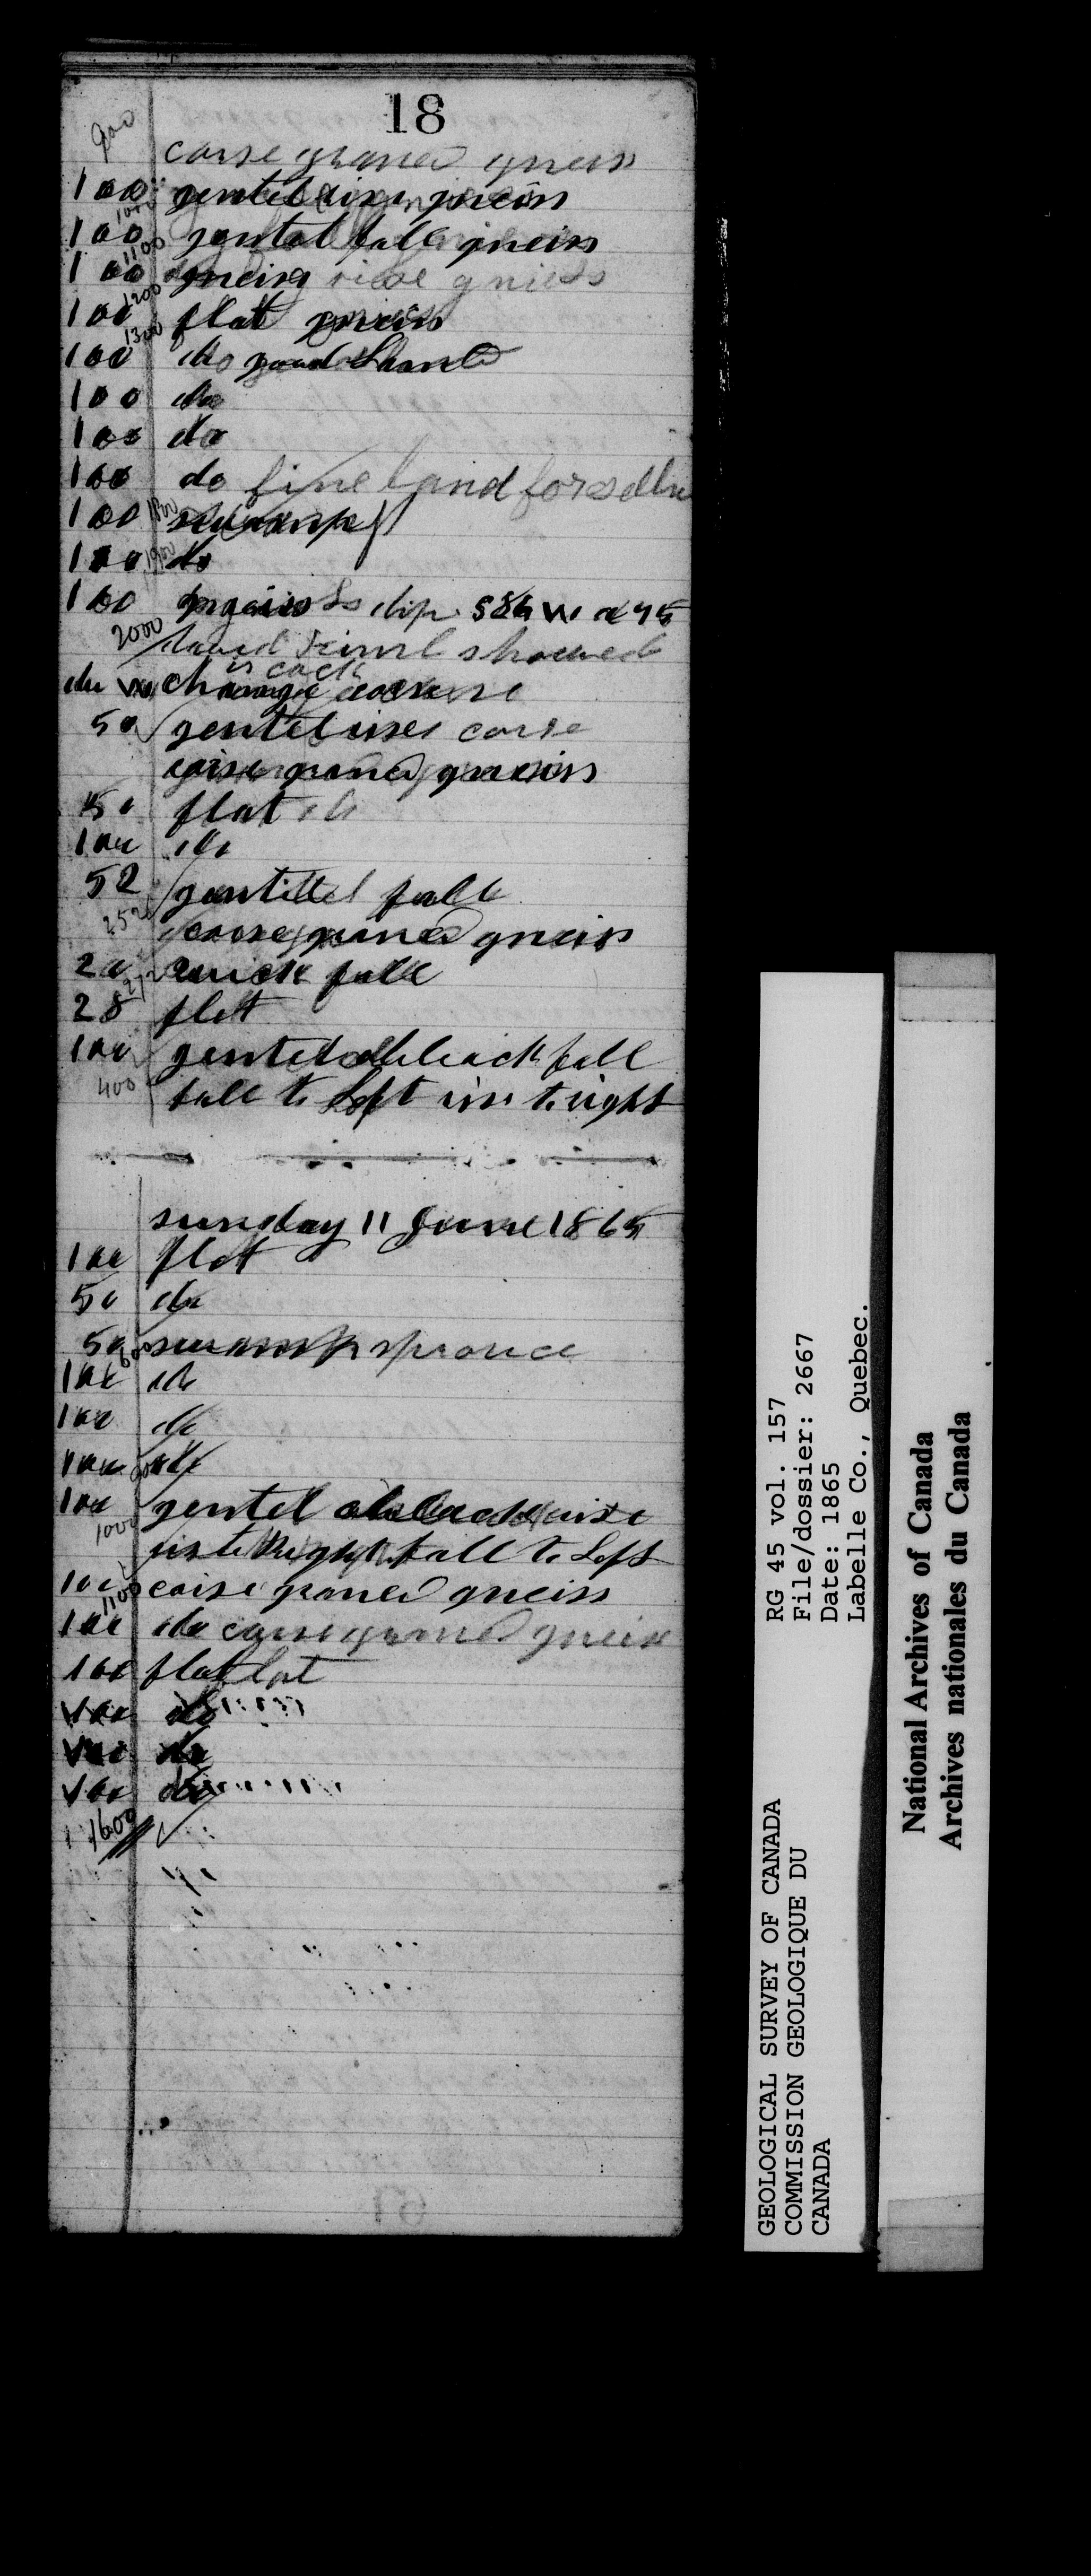 18
900
corse graned gneiss
100 gentel rise gneiss
1000
100 gentel fall gneiss
1100
100 gneiss rise gniess
1200
100 flat gneiss
1300
100 do good land
100 do
100 do
100 do fine land for
100 1800 swamp
100 1900 do
100 gneiss dip W 45
2000
change course
50 gentel rise corse
corse graned gneiss
50 flat do
100 do
52 gentel fall
252 corse graned gneiss
20 quick fall
272
28 flat
100 gentel fall
400 fall to Left rise to right
sunday 11 June 1865
100 flat
50 do
50 swamp sprouce
600
100 do
100 do
100 do
900
100 gentel rise
1000 rise to Right fall to Left
100 corse graned gneiss
1100
100 do corse graned gneiss
100 flat flat
100 do
100 do
100 do
1600
GEOLOGICAL SURVEY OF CANADA
COMMISSION GEOLOGIQUE DU
CANADA
RG 45 vol. 157
File/dossier: 2667
Date: 1865
Labelle Co., Quebec.
National Archives of Canada
Archives nationales du Canada